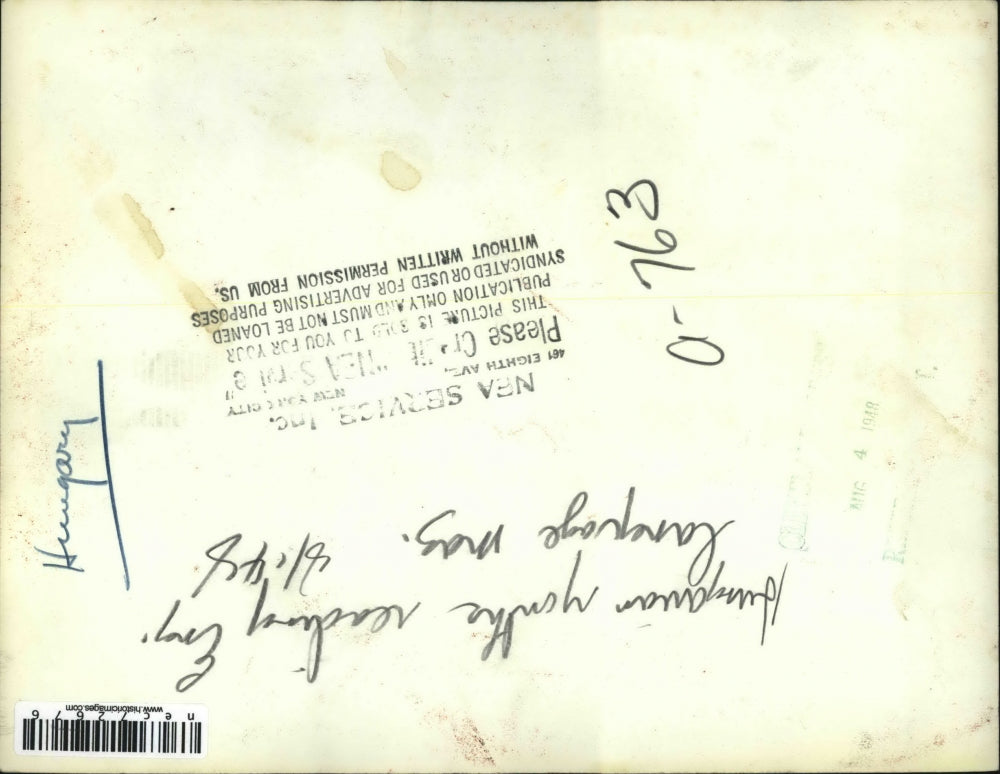 Hungary
a-763
NEA SERVICE, Inc.
461 EIGHTH AVE., NEW YORK CITY
Please Credit "NEA Service"
THIS PICTURE IS SOLD TO YOU FOR YOUR
PUBLICATION ONLY AND MUST NOT BE LOANED
SYNDICATED OR USED FOR ADVERTISING PURPOSES
WITHOUT WRITTEN PERMISSION FROM US.
Hungarian youths reading Eng.
language mag.
AUG 4 1948
necz72676
www.historicimages.com